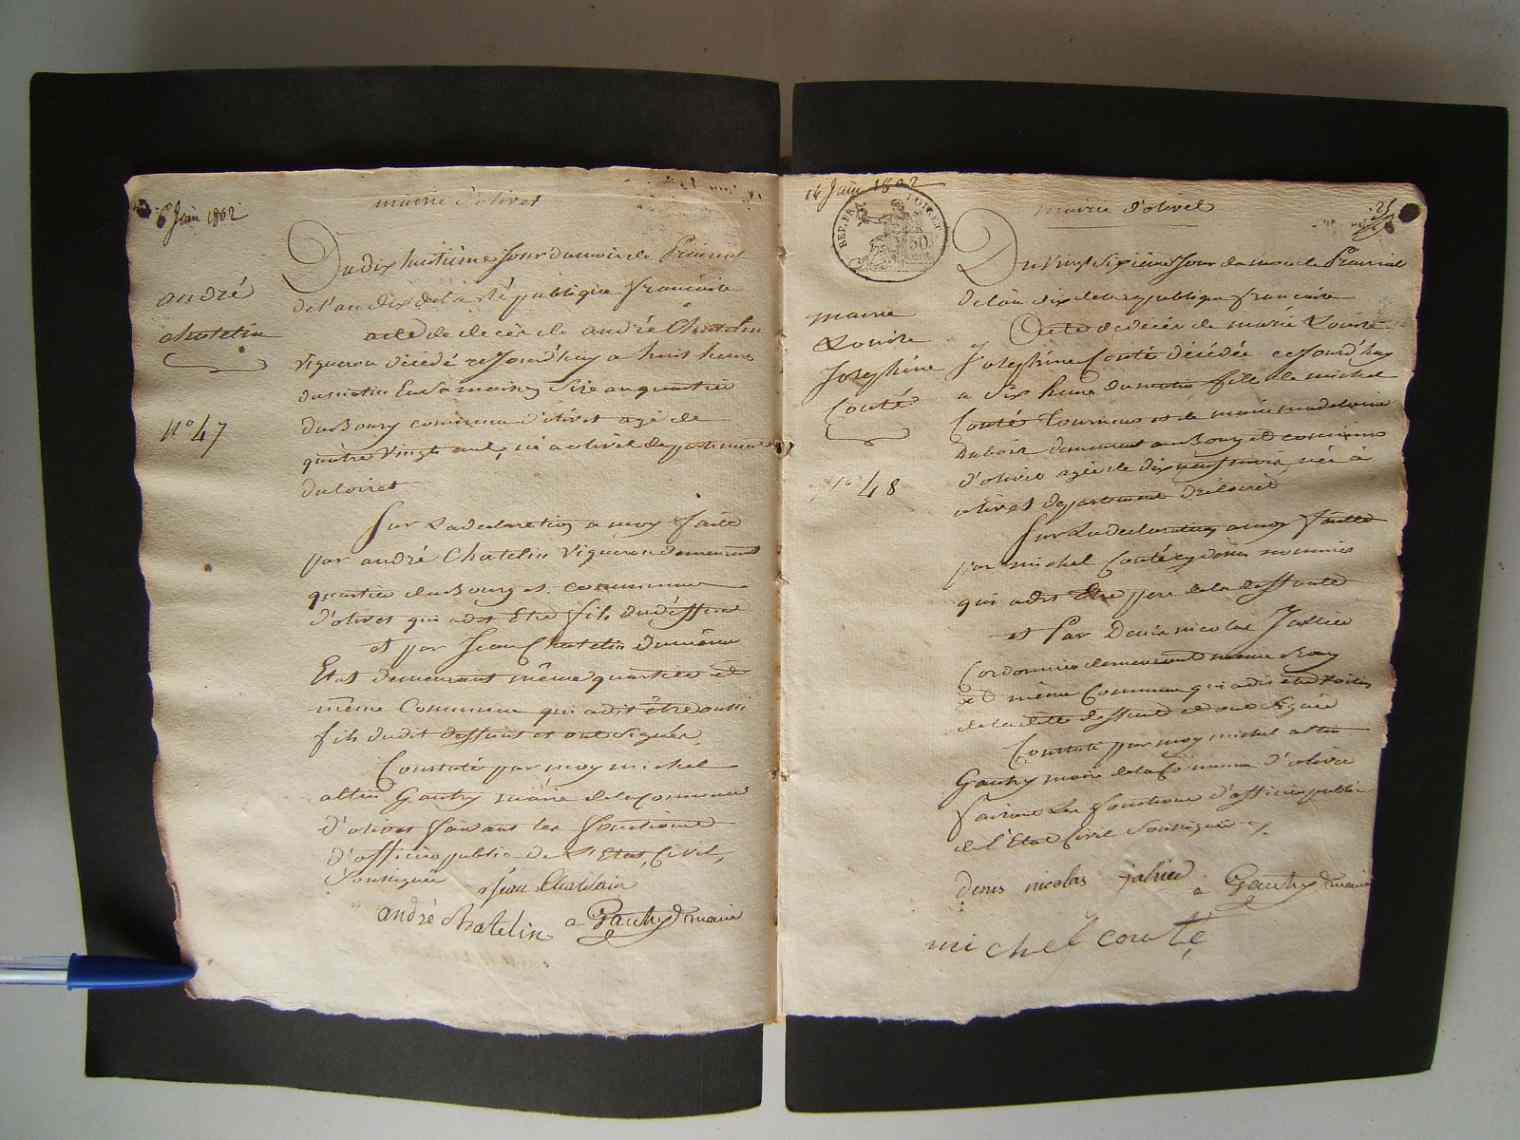 6 Juin 1802
mairie d'olivet
andré
chatelin
n° 47
Du dix huitieme Jour du mois de Prairial
de l'an dix de la République française
acte de décès de andré Chatelin
vigneron décédé ce Jourd'huy a huit heure
du matin En sa maison Size au quartier
du Bourg commune d'olivet agé de
quatre Vingts ans, né a olivet departement
du loiret
Sur La declaration a moy faitte
par andré Chatelin Vigneron demeurant
quartier du Bourg et commune
d'olivet qui a dit Etre fils du deffunt
et par Jean Chatelin du même
Etat demeurant même quartier et
même Commune qui a dit être aussi
fils dudit deffunt et ont Signés
Constaté par moy michel
altin Gautry maire de la Commune
d'olivet faisant les fonctions
d'officier public de l'Etat Civil,
Soussignée
Jean Chatelain
andré chatelin a Gautry maire
14 Juin 1802
REP. FRA.
50
mairie d'olivet
25
marie
Louise
Josephine
Couté
n° 48
Du Vingt Sixieme Jour du mois de Prairial
de l'an dix de la republique francaise
Acte de décès de marie Louise
Josephine Couté décédée ce Jourd'huy
a Six heure du matin fille de michel
Couté Tourneur et de marie madeleine
Dubois demeurant au Bourg et commune
d'olivet agée de dix neuf mois, née à
olivet departement du loiret
Sur La declaration a moy faitte
par michel Couté cy dessus nommée
qui a dit Etre pere de la deffunte
et Par Denis nicolas Jallier
Cordonnier demeurant même Bourg
et même Commune qui a dit être voisin
de laditte deffunte et ont Signée
Constaté par moy michel altin
Gautry maire de la Commune d'olivet
faisant Les fonctions d'officier public
de l'Etat Civil Soussignée
denis nicolas jalier a Gautry maire
michel couté